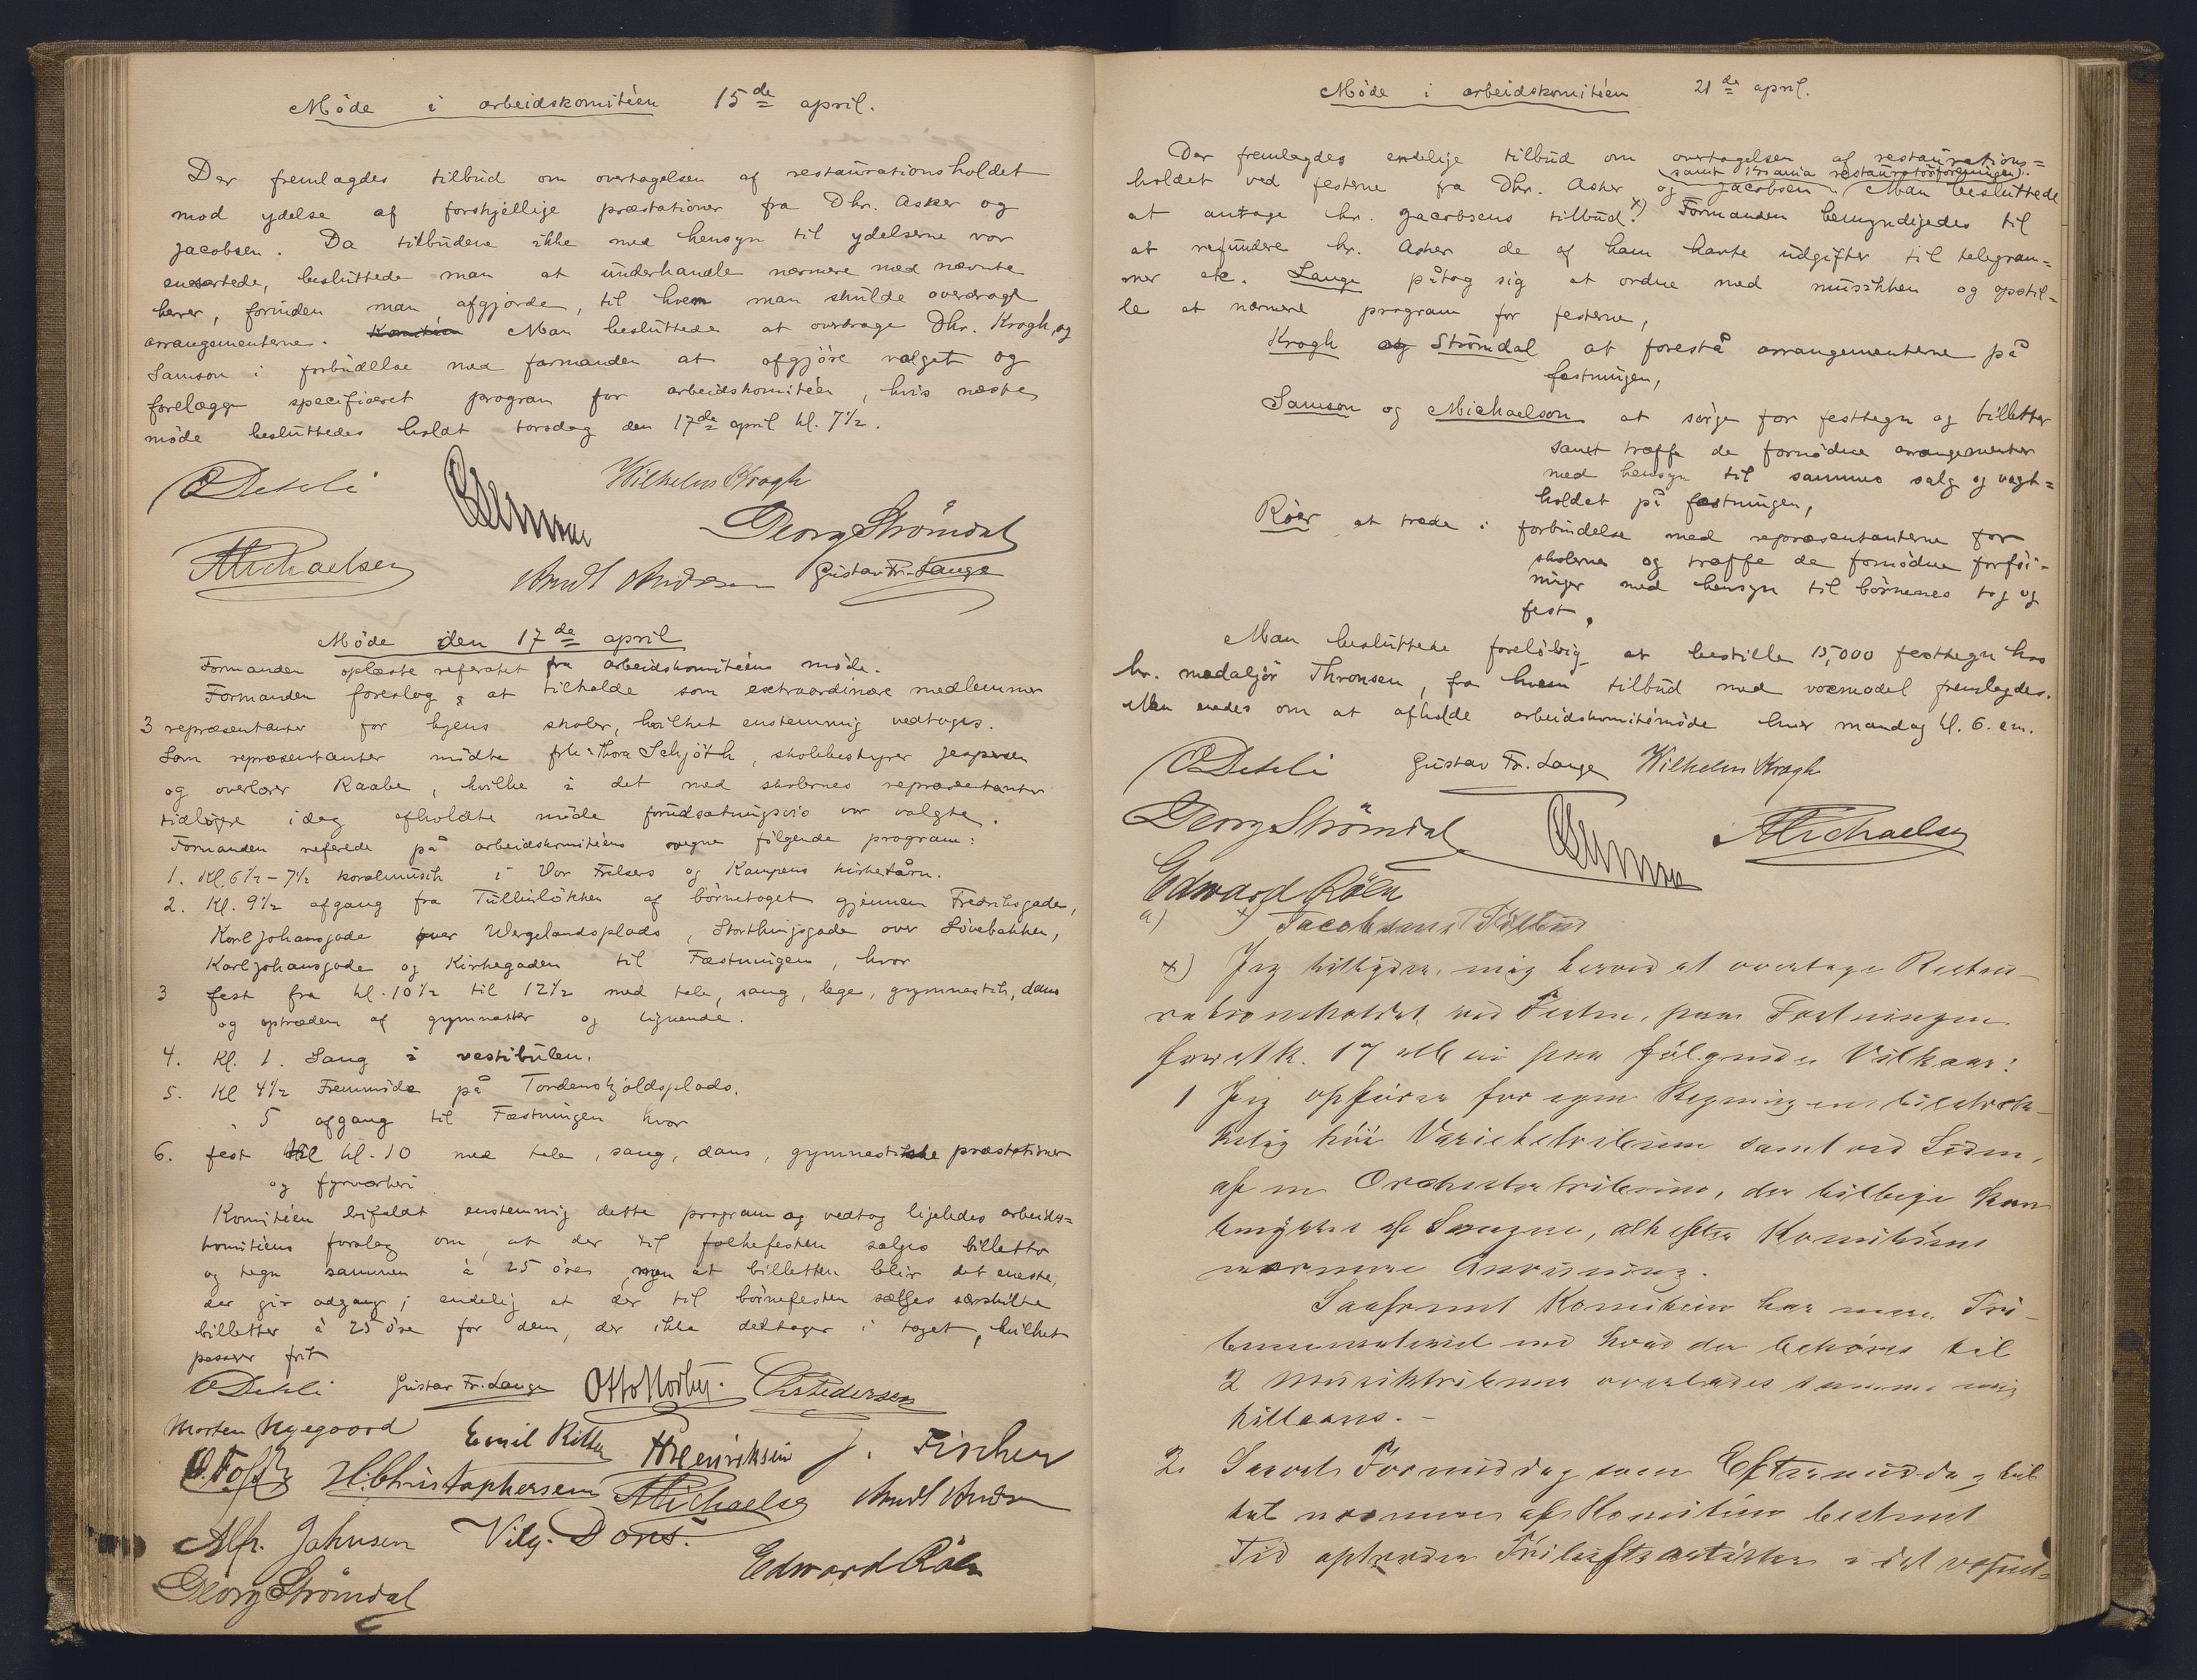 Møde i arbeidskomitéen 15de april.
Der fremlagdes tilbud om overtagelsen af restaurationsholdet
mod ydelse af forskjellige præstationer fra Dhr. Asker og
Jacobsen. Da tilbudene ikke med hensyn til ydelserne var
ensartede, besluttede man at underhandle nærmere med nævnte
herrer, forinden man afgjorde, til hvem man skulde overdrage
arrangementerne. Komitéen Man besluttede at overdrage Dhr. Krogh, og
Samson i forbindelse med formanden at afgjøre valget og
forelægge specificeret program for arbeidskomitéen, hvis næste
møde besluttedes holdt torsdag den 17de april kl. 7½.
O Dehli
Wilhelm Krogh
Georg Strömdal
AMichaelsen
Arndt Andersen
Gustav Fr. Lange
Møde den 17de april
Formanden oplæste referatet fra arbeidskomitéens møde.
Formanden foreslog at tilkalde som extraordinære medlemmer
3 repræsentanter for byens skoler, hvilket enstemmig vedtoges.
Som repræsentanter mødte frk. Thora Schjøth, skolebestyrer Jespersen
og overlærer Raabe, hvilke i det med skolernes repræsentanter
tidligere idag afholdte møde forudsætningsvis var valgte.
Formanden refererede på arbeidskomitéens vegne følgende program:
1. Kl. 6½ – 7½ koralmusik i Vor Frelsers og Kampens kirketårn.
2. Kl. 9½ afgang fra Tullinløkken af børnetoget gjennem Fredriksgade,
Karl Johansgade over Wergelandsplads, Storthingsgade over Løvebakken,
Karl Johansgade og Kirkegaden til Fæstningen, hvor
3 fest fra kl. 10½ til 12½ med tale, sang, lege, gymnastik, dans
og optræden af gymnaster og lignende.
4. Kl. 1. Sang i vestibulen.
5. Kl 4½ Fremmøde på Tordenskjoldsplads.
" 5 afgang til Fæstningen hvor
6. fest til kl. 10 med tale, sang, dans, gymnastiske præstationer
og fyrværkeri
Komitéen bifaldt enstemmig dette program og vedtog ligeledes arbeids=
komitéens forslag om, at der til folkefesten sælges billetter
og tegn sammen à 25 øre, men at billetten blir det eneste,
der gir adgang; endelig at der til børnefesten sælges særskilte
billetter à 25 øre for dem, der ikke deltager i toget, hvilket
passerer frit
O Dehli Gustav Fr. Lange Otto Norby. Chr Pedersen
Morten Nyegaard Emil Ritter HHenriksen J. Fischer
H. Christophersen AMichaelsen Arndt Andersen
Alfr. Johnsen Vilh. Dons.
Edward Röen
Georg Strömdal
Møde i arbeidskomitéen 21de april.
Der fremlagdes endelige tilbud om overtagelsen af restaurations=
samt Kr.ania restauratörforening
holdet ved festerne fra Dhr. Asker og Jacobsen Man besluttede
at antage hr. Jacobsens tilbud. x) Formanden bemyndigedes til
at refundere hr. Asker de af ham havte udgifter til telegram=
mer etc. Lange påtog sig at ordne med musikken og opstil=
le et nærmere program for festerne,
Krogh og Strömdal at forestå arrangementerne på
fæstningen,
Samson og Michaelsen at sørge for festtegn og billetter
samt træffe de fornødne arrangementer
med hensyn til sammes salg og vagt=
holdet på fæstningen,
Röer at træde i forbindelse med repræsentanterne for
skolerne og træffe de fornødne forføi-
ninger med hensyn til børnenes tog og
fest.
Man besluttede foreløbig at bestille 15,000 festtegn hos
hr. medaljør Thronsen, fra hvem tilbud med voxmodel fremlagdes.
Man enedes om at afholde arbeidskomitémøde hver mandag kl. 6. em.
O Dehli Gustav Fr. Lange Wilhelm Krogh
Georg Strömdal AMichaelsen
Edward Röen
a) x) Jacobsens Tilbud
x) Jeg tilbyder mig herved at overtage Restau-
rationsholdet ved Festen paa Fæstningen
førstk. 17 Mai paa følgende Vilkaar:
1 Jeg opfører for egen Regning en tilstræk-
kelig höi Varietetribune samt ved Siden
af en Orchestertribune, der tillige kan
benyttes af Sangere, alt efter Komiteens
nærmere Anvisning.
Saafremt Komiteen har mere Tri-
bunemateriel end hvad der behøves til
2 Musiktribuner overlades samme mig
tillaans. –
2. Saavel Formiddag som Eftermiddag til
tid optræder Friluftsartister